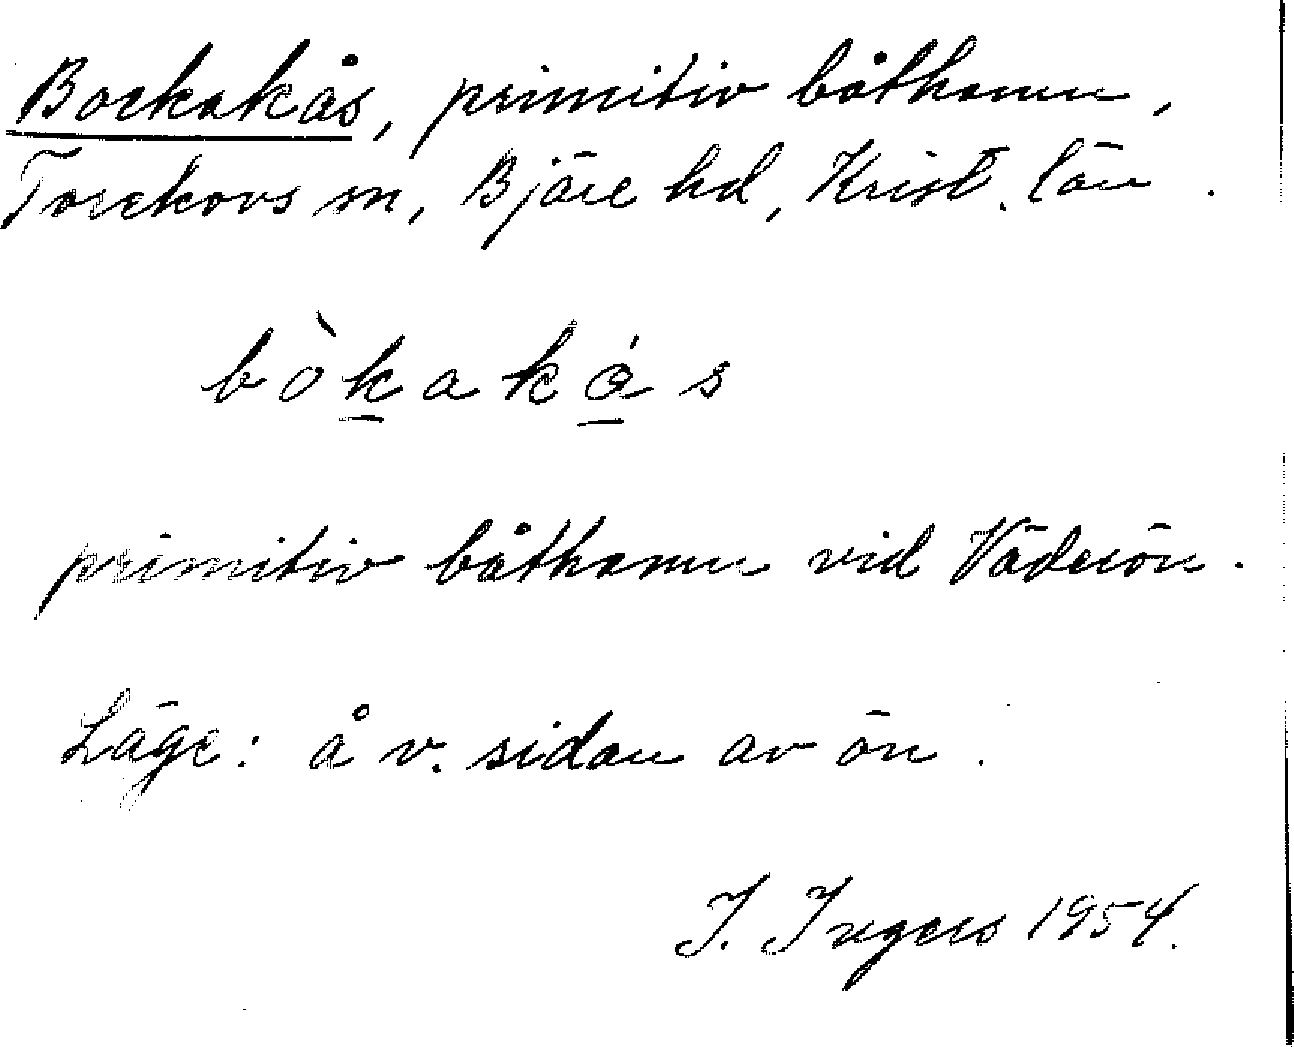 Bockakås, primitiv båthamn,
Torekovs sn, Bjäre hd, Krist. län.
bòkakás
primitiv båthamn vid Väderön.
Läge: å v. sidan av ön.
I. Ingers 1954.